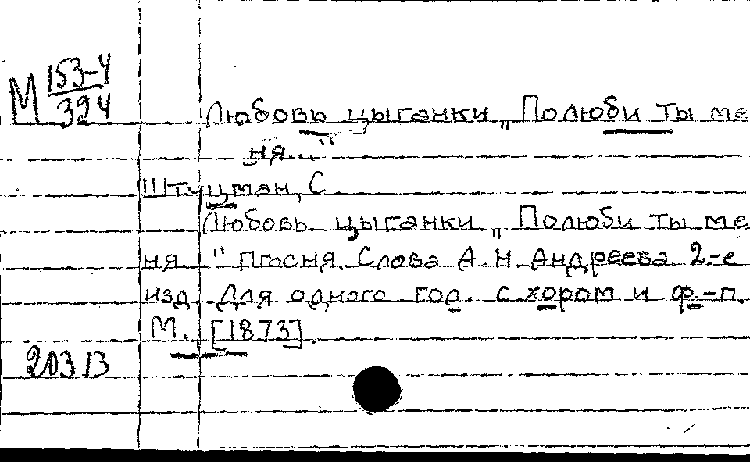 М 153-4
324
Любовь цыганки „Полюби ты ме
ня..."
Штуцман, С.
Любовь цыганки „Полюби ты ме
ня" Песня. Слова А.Н. Андреева 2-е
изд. Для одного гол. с хором и ф.-п.
М. [1873].
203